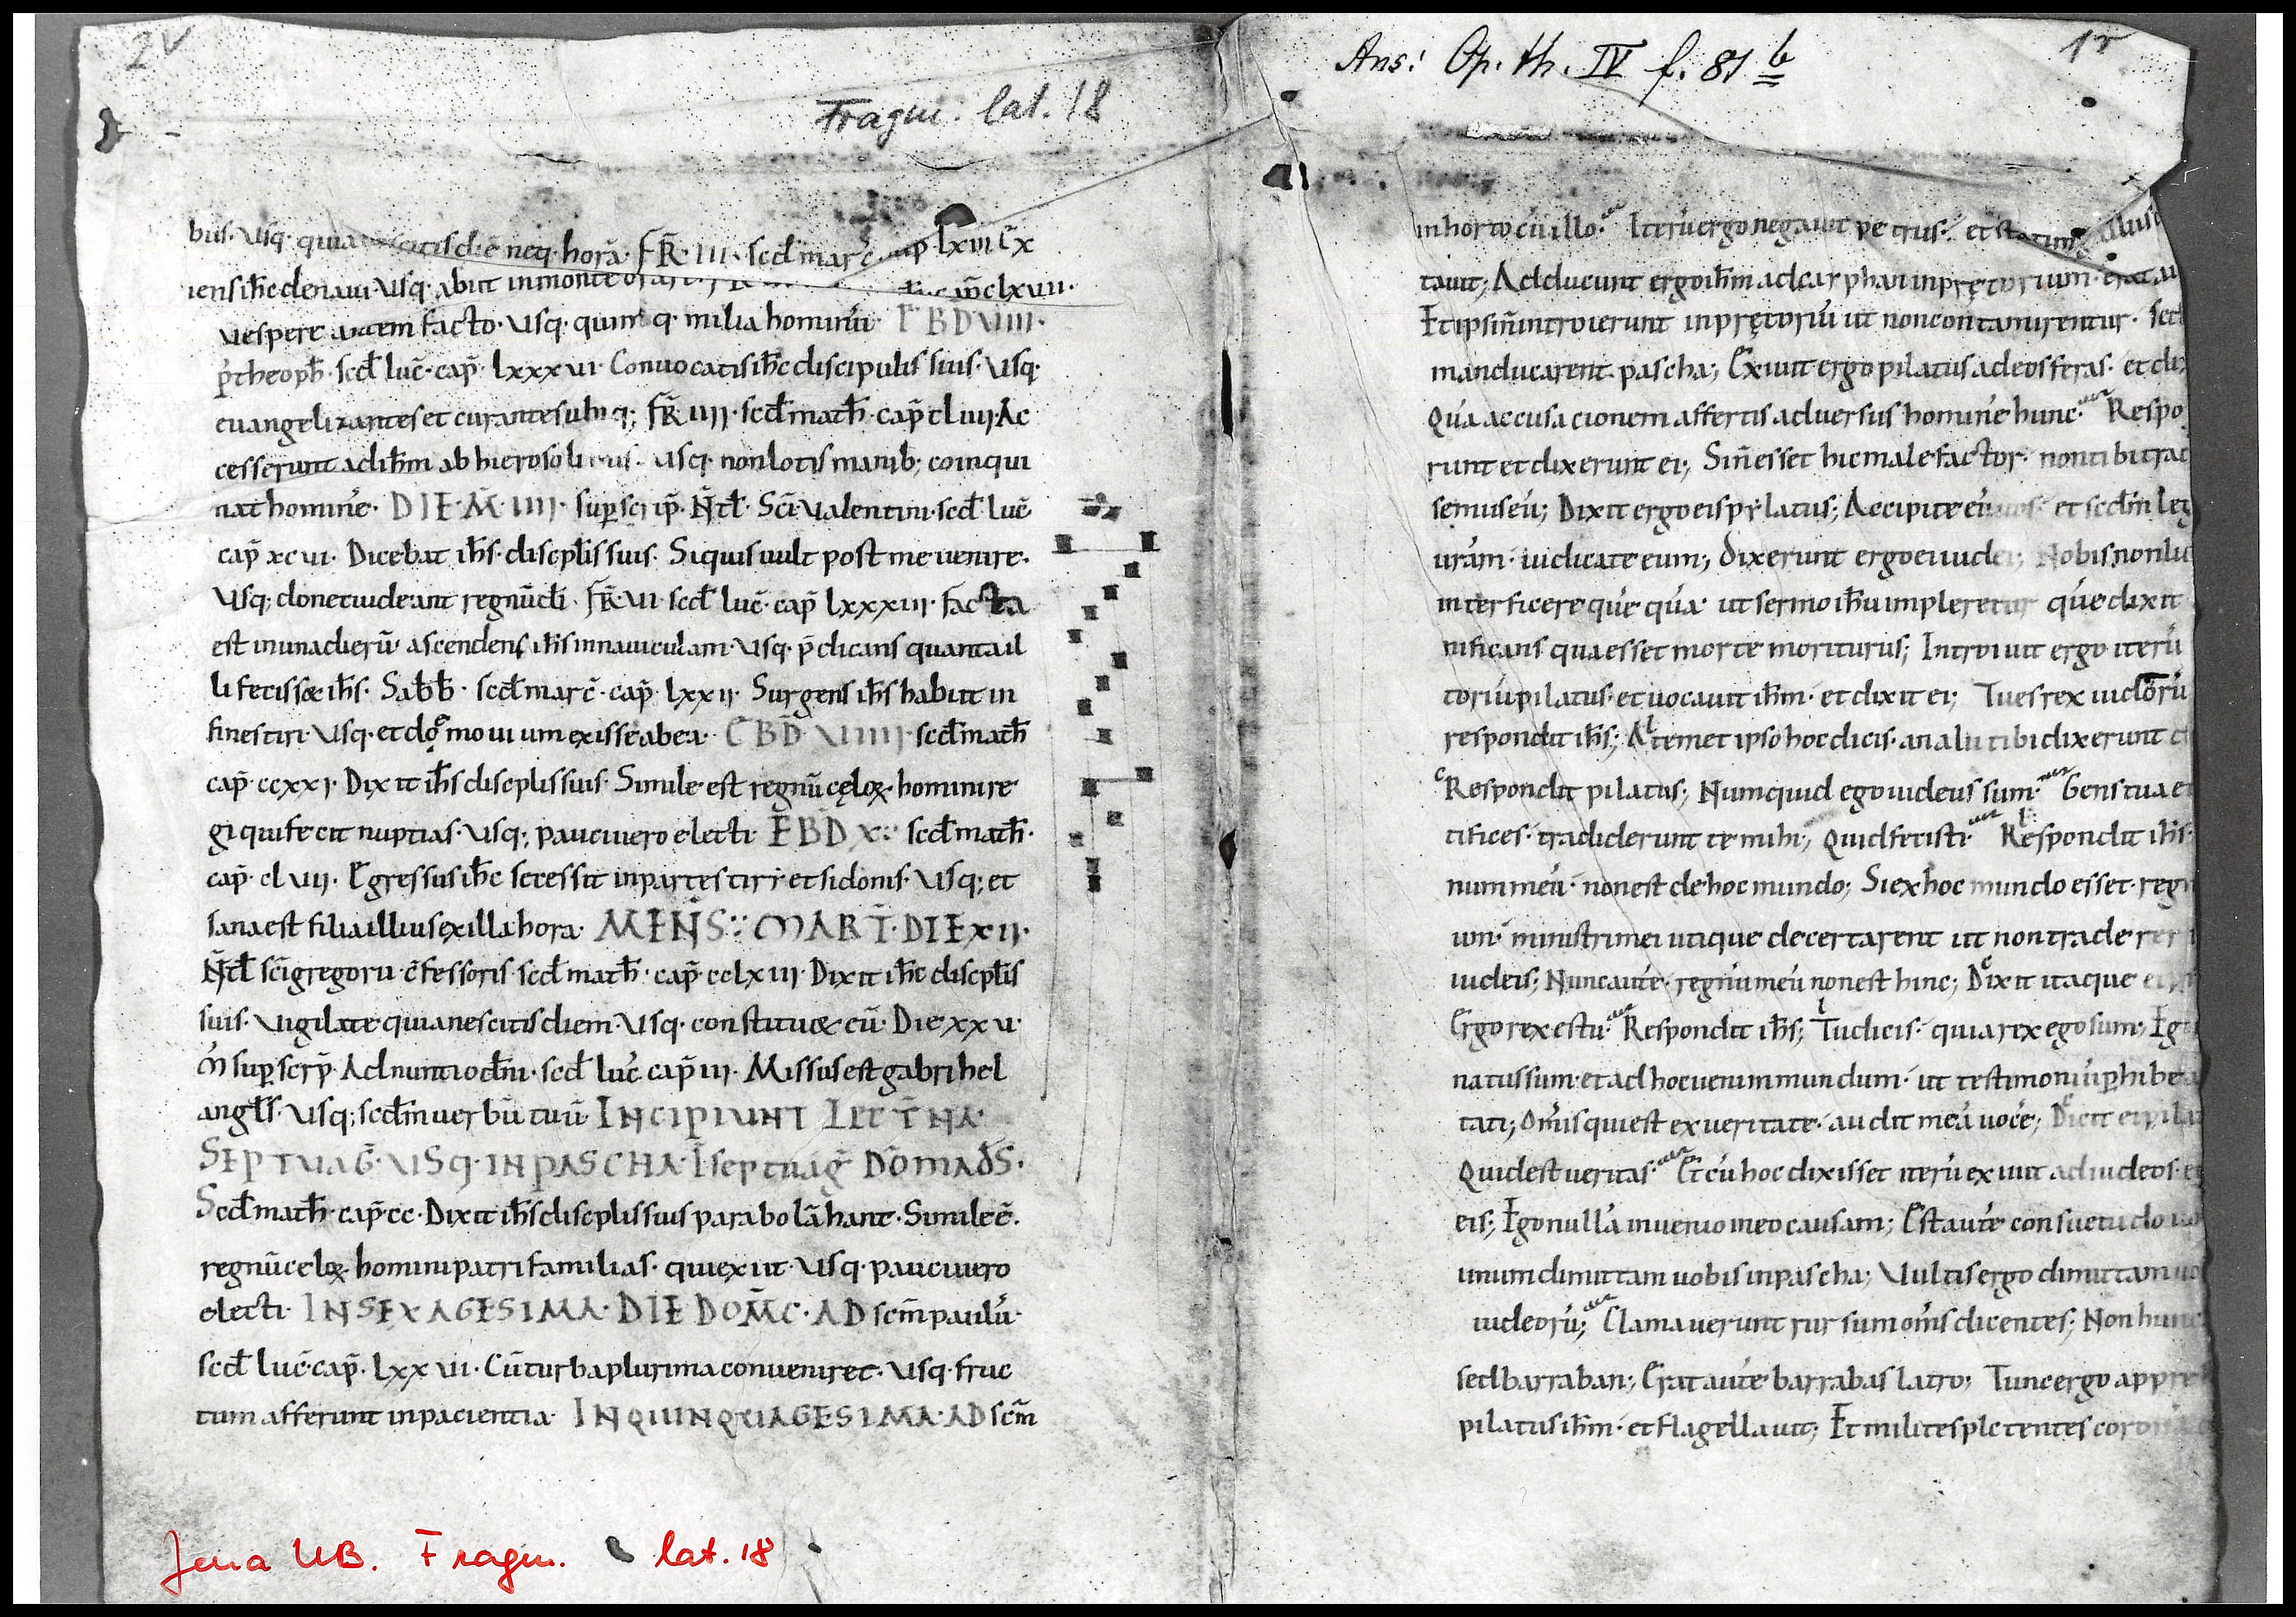 2v
Fragm. lat. 18
bus. Usq. quia nescitis diē neq. horā. FR̄. III. scd̄ marc̄ cap̄ lxiii Ex
iens ih̄c de naui Usq. abiit in monte orare clxuii.
Uespere autem facto. Usq. quinq. milia hominū. EBD VIIII.
p̄ theoph̄. scd̄ luc̄. cap̄. lxxxui. Conuocatis ih̄c discipulis suis. Usq.
euangelizantes et curantes ubiq; FR̄ IIII. scd̄ math̄. cap̄ cluii Ac
cesserunt ad ih̄m ab hierosolimis. usq. non lotis manib; coinqui
nat hominē. DIE. M̄. IIII. sup scrip̄. N̄tl̄. Sc̄i Ualentini. scd̄ luc̄
cap̄ xcui. Dicebat ih̄s. discpl̄is suis. Siquis uult post me uenire.
Usq; donec uideant regnū dī. FR̄. UI. scd̄ luc̄. cap̄ lxxxiii. facta
est in una dierū ascendens ih̄s in nauiculam. Usq. p̄dicans quanta il
li fecisset ih̄s. Sabb̄. scd̄ marc̄. cap̄. lxxii. Surgens ih̄s habiit in
fines tiri. Usq. et domo uium exisse abea. EBD̄ VIIII. scd̄ math̄
cap̄. ccxxi. Dixit ih̄s discplis suis. Simile est regnū cęloꝝ. homini re
gi qui fecit nuptias. Usq; pauci uero electi EBD X. scd̄ math̄.
cap̄. cluii. Egressus ih̄c secessit in partes tiri et sidonis. Usq; et
sana est filia illius ex illa hora. MEN̄S: MART̄. DIE XII.
N̄tl̄ sc̄i gregorii c̄fessoris. scd̄ math̄. cap̄. cclxiii. Dixit ih̄c discpl̄is
suis. Uigilate quia nescitis diem. Usq. constituet eū. Die xxu.
M̄ sup scrp̄. Adnuntio dn̄i. scd̄ luc̄. cap̄ iii. Missus est gabrihel
angl̄s. Usq; scd̄m uerbū tuū INCIPIUNT LECT̄ NA
SEPTUAḠ. USQ. IN PASCHA. I septuaḡ DOMADS.
Scd̄ math̄. cap̄. cc. Dixit ih̄s discplis suis parabolā hanc. Simile ē.
regnū celoꝝ. homini patri familias. qui exiit. Usq. pauci uero
electi. IN SEXAGESIMA. DIE DOM̄C. AD sc̄m paulū.
scd̄ luc̄. cap̄. lxxui. Cū turba plurima conuenirec. Usq. fruc
tum afferunt in pacientia. IN QUINQUAGESIMA. AD sc̄m
Jena UB. Fragm. lat. 18
Ans: Op. th. IV f. 81 b
1r
in horto cū illo. Iterū ergo negauit petrus. et statim gallus
tauit; Adducunt ergo ih̄m ad caiphan in prętorium. erat au
Et ipsi n̄ introierunt in prętoriū ut non contaminrentur. sed
manducarent pascha; Exiuit ergo pilatus ad eos foras. et dix
Quā accusacionem affertis aduersus hominē hunc. Respo
runt et dixerunt ei; Si n̄ esset hic malefactor. non tibi trad
semus eū; Dixit ergo eis pylatus; Accipite eū uos. et scd̄m leg
urām. iudicate eum; dixerunt ergo ei iudei; Nobis non lic
interficere quē quā. ut sermo ih̄u impleretur quē dixit
nificans qua esset morte moriturus; Introiuit ergo iterū
toriū pilatus. et uocauit ih̄m. et dixit ei; Tu es rex iudeorū
respondit ih̄s; A temet ipso hoc dicis. an alii tibi dixerunt d
Respondit pilatus; Numquid ego iudeus sum. Gens tua et
tifices. tradiderunt te mihi; Quid fecisti. Respondit ih̄s.
num meū. non est de hoc mundo; Si ex hoc mundo esset. regn
um. ministri mei utique decertarent ut non traderer
iudeis; Nunc autē. regnū meū non est hinc; Dixit itaque ei
Ergo rex es tu. Respondit ih̄s; Tu dicis. quia rex ego sum; Eg
natus sum. et ad hoc ueni in mundum. ut testimoniū phibea
tati; Om̄is qui est ex ueritate. audit meā uocē; Dicit ei pila
Quid est ueritas. Et cū hoc dixisset iterū exiuit ad iudeos. et
eis; Ego nullā inuenio in eo causam; Est autē consuetudo
unum dimittam uobis in pascha; Uultis ergo dimittam uo
iudeorū; Clamauerunt rursum om̄s dicentes; Non hunc
sed barraban; Erat autē barrabas latro; Tunc ergo appre
pilatus ih̄m. et flagellauit; Et milites plectentes corona